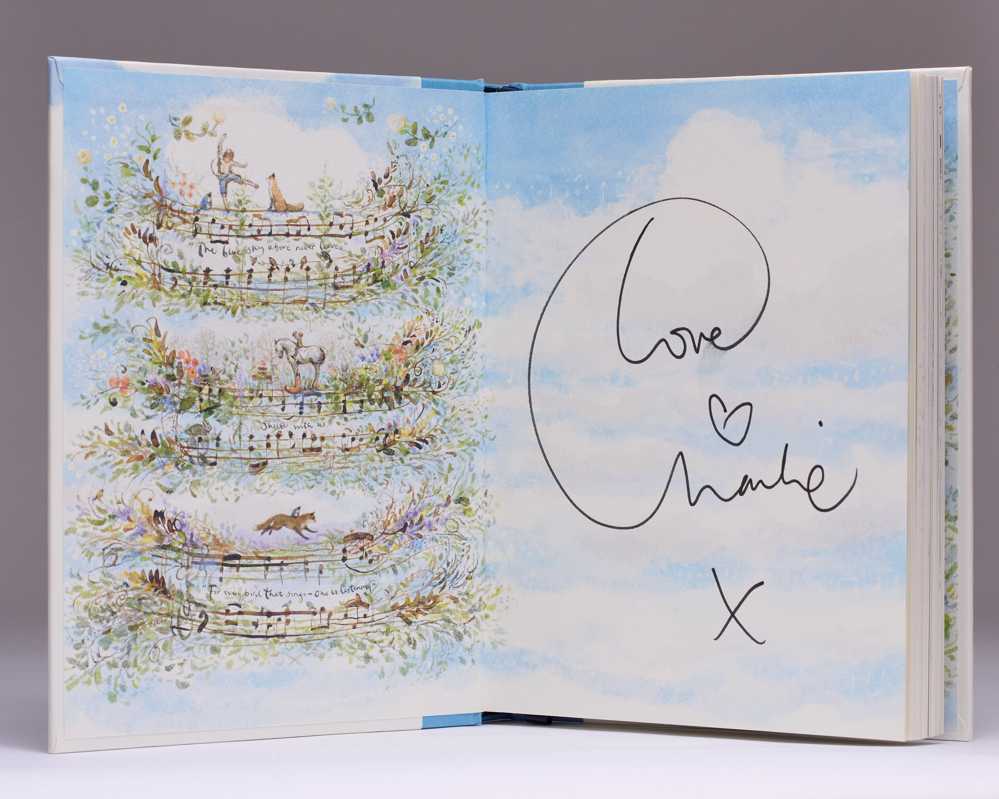 The blue sky above never leaves
Shine with us
"For every bird that sings - one is listening"
Love
Charlie
X